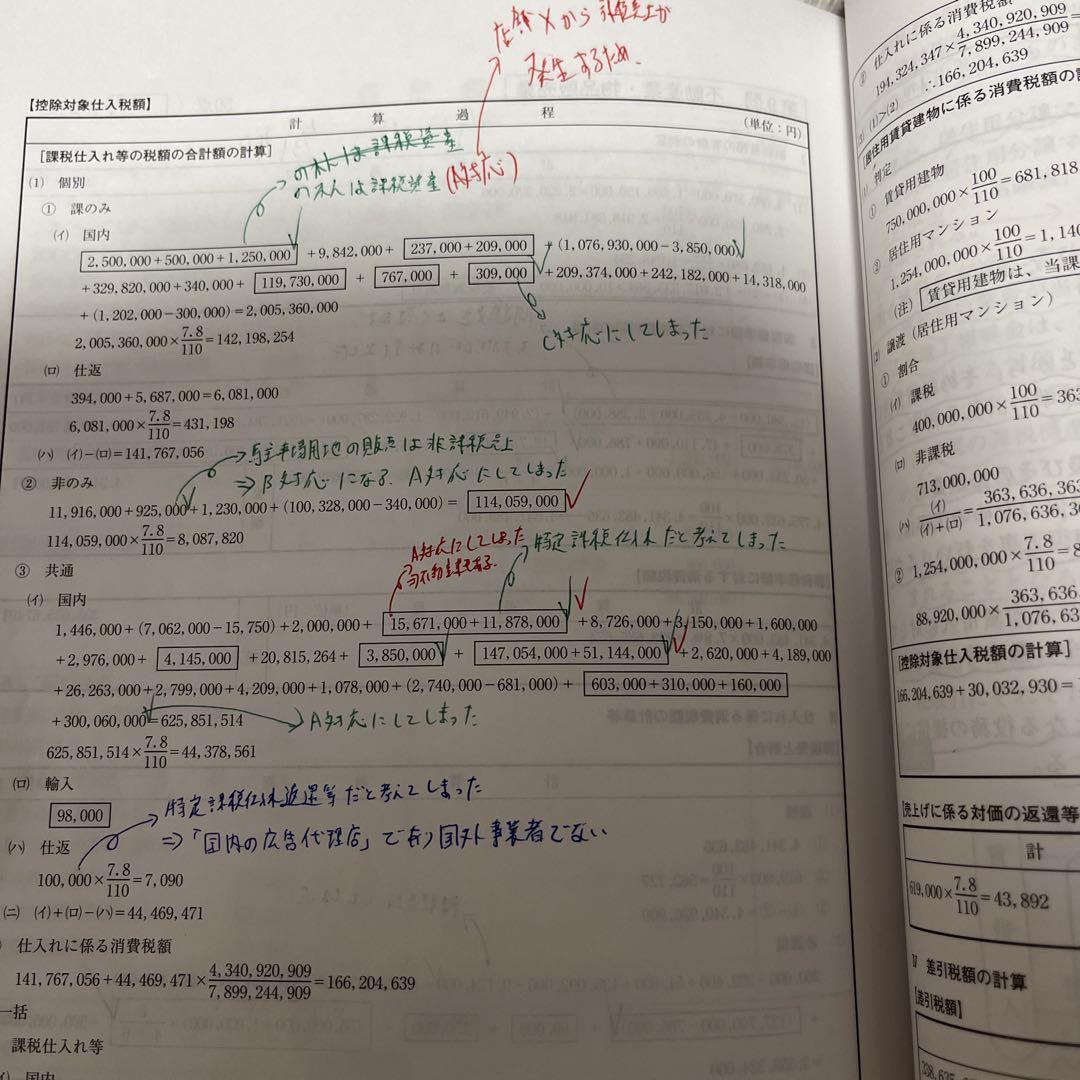 店舗Xから課税売上が
発生するため、
【控除対象仕入税額】
計 算 過 程 (単位：円)
[課税仕入れ等の税額の合計額の計算]
の木人は課税資産
の木人は課税資産(A対応)
(1) 個別
① 課のみ
(イ) 国内
2,500,000+500,000+1,250,000 +9,842,000+ 237,000+209,000 +(1,076,930,000−3,850,000)
+329,820,000+340,000+ 119,730,000 + 767,000 + 309,000 +209,374,000+242,182,000+14,318,000
+(1,202,000−300,000)=2,005,360,000
2,005,360,000×7.8/110=142,198,254
C対応にしてしまった
(ロ) 仕返
394,000+5,687,000=6,081,000
6,081,000×7.8/110=431,198
(ハ) (イ)−(ロ)=141,767,056
駐車場用地の販売は非課税売上
⇒B対応になる. A対応にしてしまった
② 非のみ
11,916,000+925,000+1,230,000+(100,328,000−340,000)= 114,059,000
114,059,000×7.8/110=8,087,820
A対応にしてしまった
特定課税仕入れだと考えてしまった
③ 共通
(イ) 国内
1,446,000+(7,062,000−15,750)+2,000,000+ 15,671,000+11,878,000 +8,726,000+3,150,000+1,600,000
+2,976,000+ 4,145,000 +20,815,264+ 3,850,000 + 147,054,000+51,144,000 +2,620,000+4,189,000
+26,263,000+2,799,000+4,209,000+1,078,000+(2,740,000−681,000)+ 603,000+310,000+160,000
+300,060,000=625,851,514
A対応にしてしまった
625,851,514×7.8/110=44,378,561
(ロ) 輸入
98,000
特定課税仕入返還等だと考えてしまった
⇒「国内の広告代理店」であり国外事業者でない
(ハ) 仕返
100,000×7.8/110=7,090
(ニ) (イ)+(ロ)−(ハ)=44,469,471
仕入れに係る消費税額
141,767,056+44,469,471×4,340,920,909/7,899,244,909=166,204,639
一括
課税仕入れ等
国内
② 仕入れに係る消費税額
194,324,347×4,340,920,909/7,899,244,909=
∴166,204,639
(1)>(2)
[居住用賃貸建物に係る消費税額の計
判定
① 賃貸用建物
750,000,000×100/110=681,818
② 居住用マンション
1,254,000,000×100/110=1,140
(注) 賃貸用建物は、当課
譲渡 (居住用マンション)
① 割合
(イ) 課税
400,000,000×100/110=363
(ロ) 非課税
713,000,000
(ハ) (イ)/(イ)+(ロ)=363,636,363/1,076,636,3
② 1,254,000,000×7.8/110=8
88,920,000×363,636/1,076,63
[控除対象仕入税額の計算]
166,204,639+30,032,930=
[売上げに係る対価の返還等
計
619,000×7.8/110=43,892
Ⅳ 差引税額の計算
[差引税額]